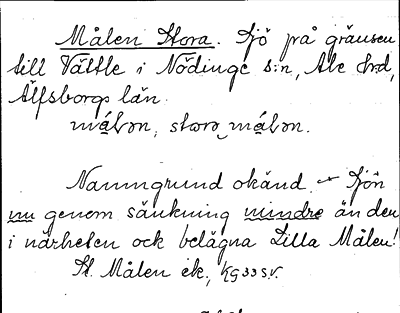 Målen Stora. Sjö på gränsen
till Vättle i Nödinge s:n, Ale hrd,
Älfsborgs län.
målɘn, storɘ målɘn.
Namngrund okänd. – Sjön
nu genom sänkning mindre än den
i närheten ock belägna Lilla Målen!
St. Målen ek., kg 33 s.v.